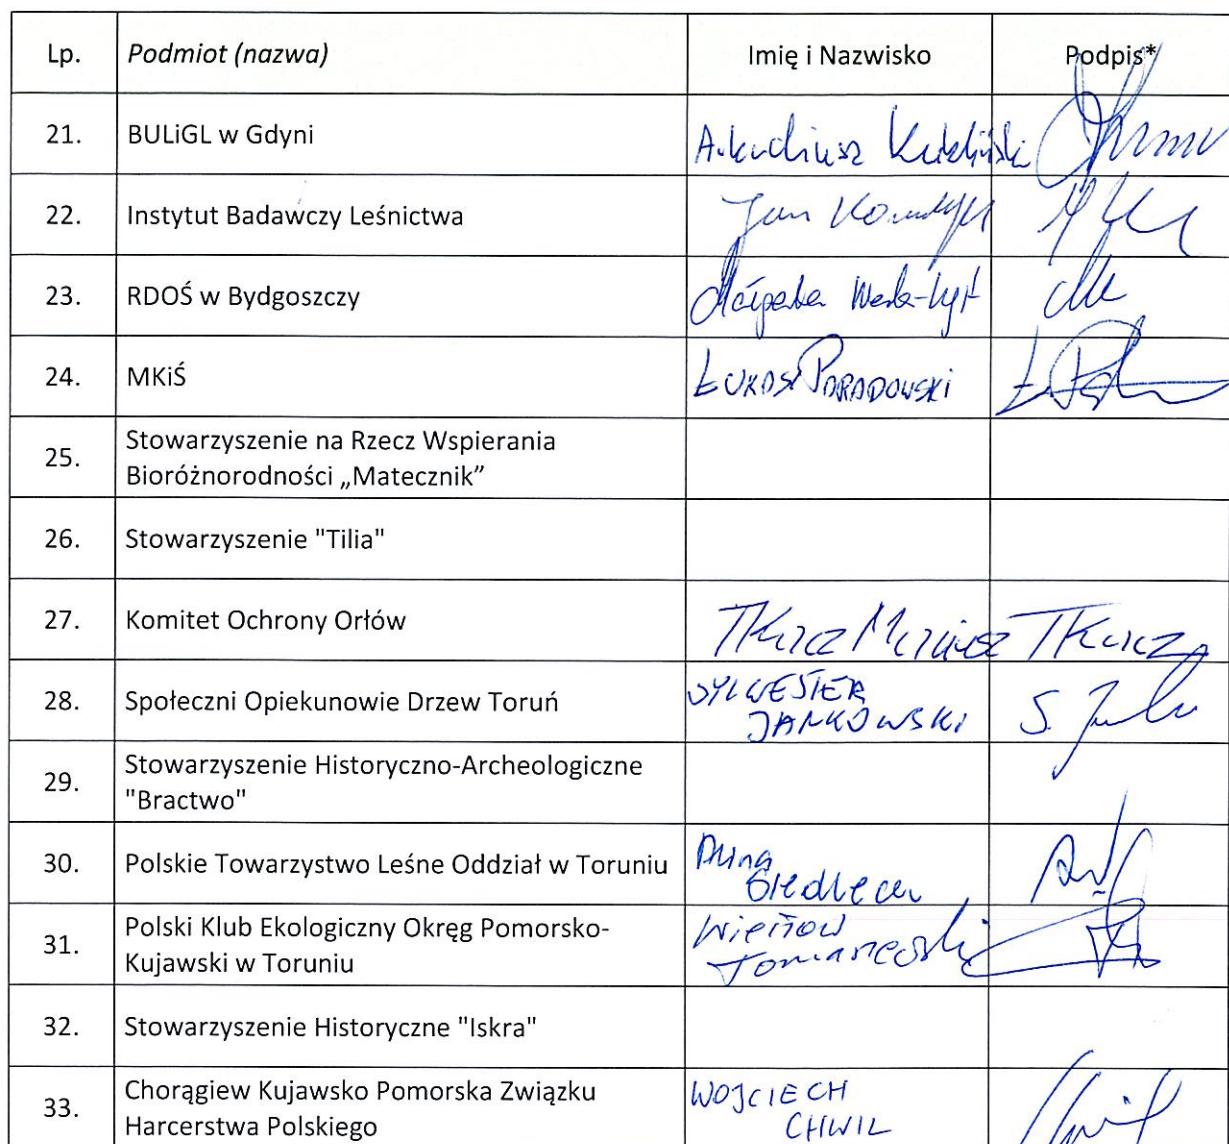 Lp. Podmiot (nazwa) Imię i Nazwisko Podpis*
21. BULiGL w Gdyni Arkadiusz
22. Instytut Badawczy Leśnictwa Jan
23. RDOŚ w Bydgoszczy
24. MKiŚ ŁUKASZ PARADOWSKI
25. Stowarzyszenie na Rzecz Wspierania
Bioróżnorodności „Matecznik”
26. Stowarzyszenie "Tilia"
27. Komitet Ochrony Orłów Tkacz Mariusz Tkacz
28. Społeczni Opiekunowie Drzew Toruń SYLWESTER
JANKOWSKI S.
29. Stowarzyszenie Historyczno-Archeologiczne
"Bractwo"
30. Polskie Towarzystwo Leśne Oddział w Toruniu Anna
31. Polski Klub Ekologiczny Okręg Pomorsko-
Kujawski w Toruniu Tomaszewski
32. Stowarzyszenie Historyczne "Iskra"
33. Chorągiew Kujawsko Pomorska Związku WOJCIECH
Harcerstwa Polskiego CHWIL